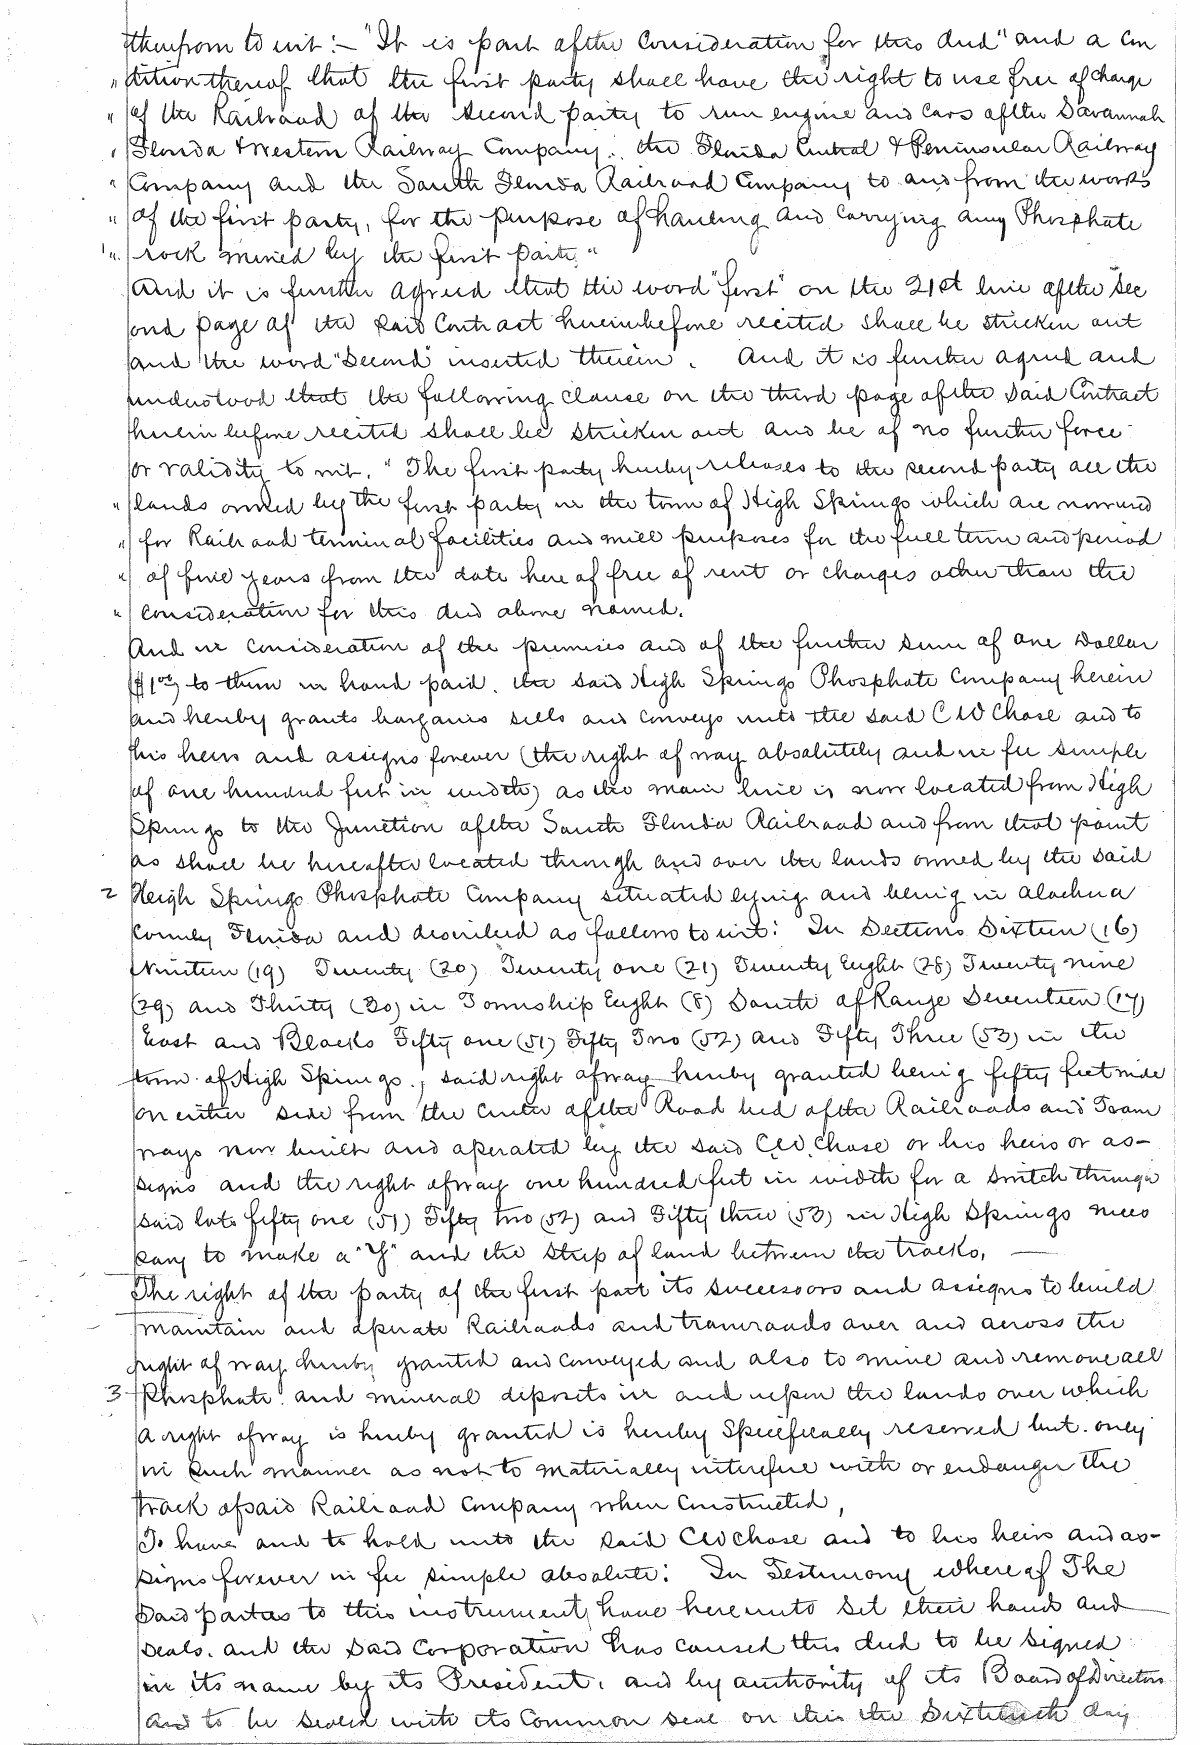 therefrom to wit:- "It is part of the Consideration for this deed" and a con
" dition thereof that the first party shall have the right to use free of charge
" of the Railroad of the second party to run engine and cars of the Savannah
" Florida & Western Railway Company, the Florida Central & Peninsular Railway
" Company and the South Florida Railroad Company to and from the works
" of the first party, for the purpose of hauling and carrying any Phosphate
" rock mined by the first party"
And it is further agreed that the word "first" on the 21st line of the Sec
ond page of the said Contract hereinbefore recited shall be stricken out
and the word "Second" inserted therein. And it is further agreed and
understood that the following clause on the third page of the said Contract
herein before recited shall be stricken out and be of no further force
or validity to wit. "The first party hereby releases to the second party all the
" lands owned by the first party in the town of High Springs which are now used
" for Railroad terminal facilities and mill purposes for the full term and period
" of five years from the date here of free of rent or charges other than the
" consideration for this deed above named.
And in consideration of the premises and of the further sum of one Dollar
($1.00) to them in hand paid. the said High Springs Phosphate Company herein
and hereby grants bargains sells and conveys unto the said C W Chase and to
his heirs and assigns forever (the right of way absolutely and in fee simple
of one hundred feet in width) as the main line is now located from High
Springs to the Junction of the South Florida Railroad and from that point
as shall be hereafter located through and over the lands owned by the said
2 Heigh Springs Phosphate Company situated lying and being in Alachua
County Florida and described as follows to wit: In Sections Sixteen (16)
Nineteen (19) Twenty (20) Twenty one (21) Twenty Eight (28) Twenty nine
(29) and Thirty (30) in Township Eight (8) South of Range Seventeen (17)
East and Blocks Fifty one (51) Fifty Two (52) and Fifty Three (53) in the
town of High Springs, said right of way hereby granted being fifty feet wide
on either side from the center of the Road bed of the Railroads and Tram
ways now built and operated by the said C W Chase or his heirs or as-
signs and the right of way one hundred feet in width for a switch through
said lots fifty one (51) Fifty two (52) and Fifty three (53) in High Springs neces
sary to make a "Y" and the strip of land between the tracks.
The right of the party of the first part its successors and assigns to build
maintain and operate Railroads and tramroads over and across the
right of way hereby granted and conveyed and also to mine and remove all
3 Phosphate and mineral deposits in and upon the lands over which
a right of way is hereby granted is hereby Specifically reserved but only
in such manner as not to materially interefere with or endanger the
track of said Railroad Company when constructed,
To have and to hold unto the said C W Chase and to his heirs and as-
signs forever in fee simple absolute: In Testimony where of The
Said parties to this instrument have here unto set their hands and
seals. and the said Corporation has caused this deed to be signed
in its name by its President. and by authority of its Board of Directors
and to be sealed with its Common seal on this the Sixteenth day